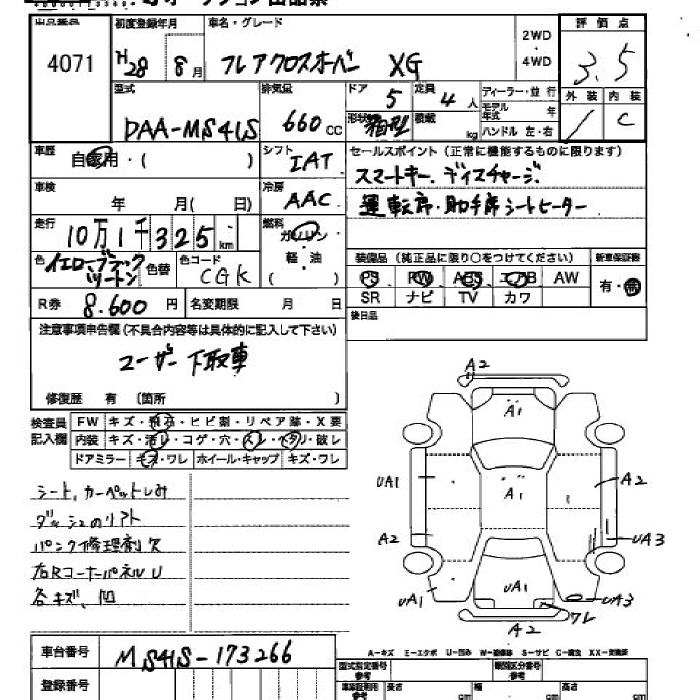 出品番号 初度登録年月 車名・グレード 2WD・4WD 評価点
4071 H28 8月 フレアクロスオーバー XG 3.5
外装 内装
型式 排気量 ドア 定員 ディーラー・並行
DAA-MS41S 660cc 5 4人 モデル年式 年
形状 箱型 積載 kg ハンドル 左・右 / C
車歴 自家用・( ) シフト IAT セールスポイント(正常に機能するものに限ります)
スマートキー、ディスチャージ、
車検 年 月( 日) 冷房 AAC
運転席・助手席シートヒーター
走行 10万1千325km 燃料 ガソリン
軽・油
( )
色 イエローブラックツートン 色替 色コード CGK
装備品(純正品に限り○をつけてください) 新車保証書
PS PW ABS エアB AW 有・無
SR ナビ TV カワ
R券 8.600円 名変期限 月 日
後日品
注意事項申告欄(不具合内容等は具体的に記入して下さい)
ユーザー下取車
修復歴 有 〔箇所 〕
検査員記入欄 FW キズ・飛石・ヒビ割・リペア跡・X要
内装 キズ・汚レ・コゲ・穴・スレ・ヘタリ・破レ
ドアミラー キズ・ワレ ホイール・キャップ キズ・ワレ
シート、カーペットしみ
ダッシュのリフト
パンク修理剤欠
右RコーナーパネルU
各キズ、凹
A2
A1
UA1 A1 A2
A2 UA3
UA1 UA1 UA3
ワレ
A2
A-キズ E-エクボ U-凹み W-補修跡 S-サビ C-腐食 XX-交換済
車台番号 MS41S-173266
型式指定番号 参考 類別区分番号 参考
登録番号 車庫証明用 参考 長さ cm 幅 cm 高さ cm